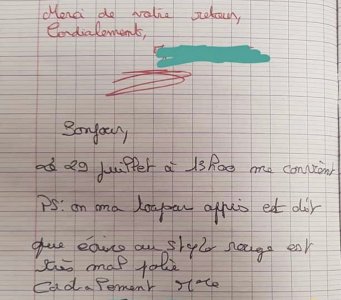 Merci de votre retour,
Cordialement,
Bonjour,
29 juillet à 13h00 me convient
PS: on ma toupar appris est dit
que écrire au stylo rouge est
très mal polie
Cordialement